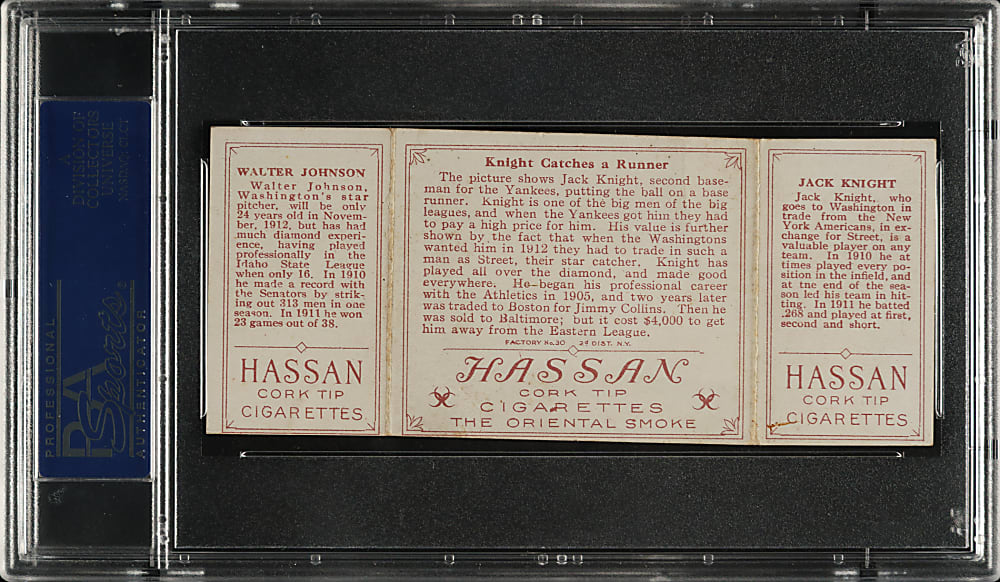 A
DIVISION OF
COLLECTORS
UNIVERSE
PROFESSIONAL
PSA
Sports
AUTHENTICATOR
WALTER JOHNSON
Walter Johnson,
Washington's star
pitcher, will be only
24 years old in Novem-
ber, 1912, but has had
much diamond experi-
ence, having played
professionally in the
Idaho State League
when only 16. In 1910
he made a record with
the Senators by strik-
ing out 313 men in one
season. In 1911 he won
23 games out of 38.
HASSAN
CORK TIP
CIGARETTES
Knight Catches a Runner
The picture shows Jack Knight, second base-
man for the Yankees, putting the ball on a base
runner. Knight is one of the big men of the big
leagues, and when the Yankees got him they had
to pay a high price for him. His value is further
shown by the fact that when the Washingtons
wanted him in 1912 they had to trade in such a
man as Street, their star catcher. Knight has
played all over the diamond, and made good
everywhere. He began his professional career
with the Athletics in 1905, and two years later
was traded to Boston for Jimmy Collins. Then he
was sold to Baltimore; but it cost $4,000 to get
him away from the Eastern League.
FACTORY No. 30 2d DIST. N.Y.
HASSAN
CORK TIP
CIGARETTES
THE ORIENTAL SMOKE
JACK KNIGHT
Jack Knight, who
goes to Washington in
trade from the New
York Americans, in ex-
change for Street, is a
valuable player on any
team. In 1910 he at
times played every po-
sition in the infield, and
at tne end of the sea-
son led his team in hit-
ting. In 1911 he batted
.268 and played at first,
second and short.
HASSAN
CORK TIP
CIGARETTES